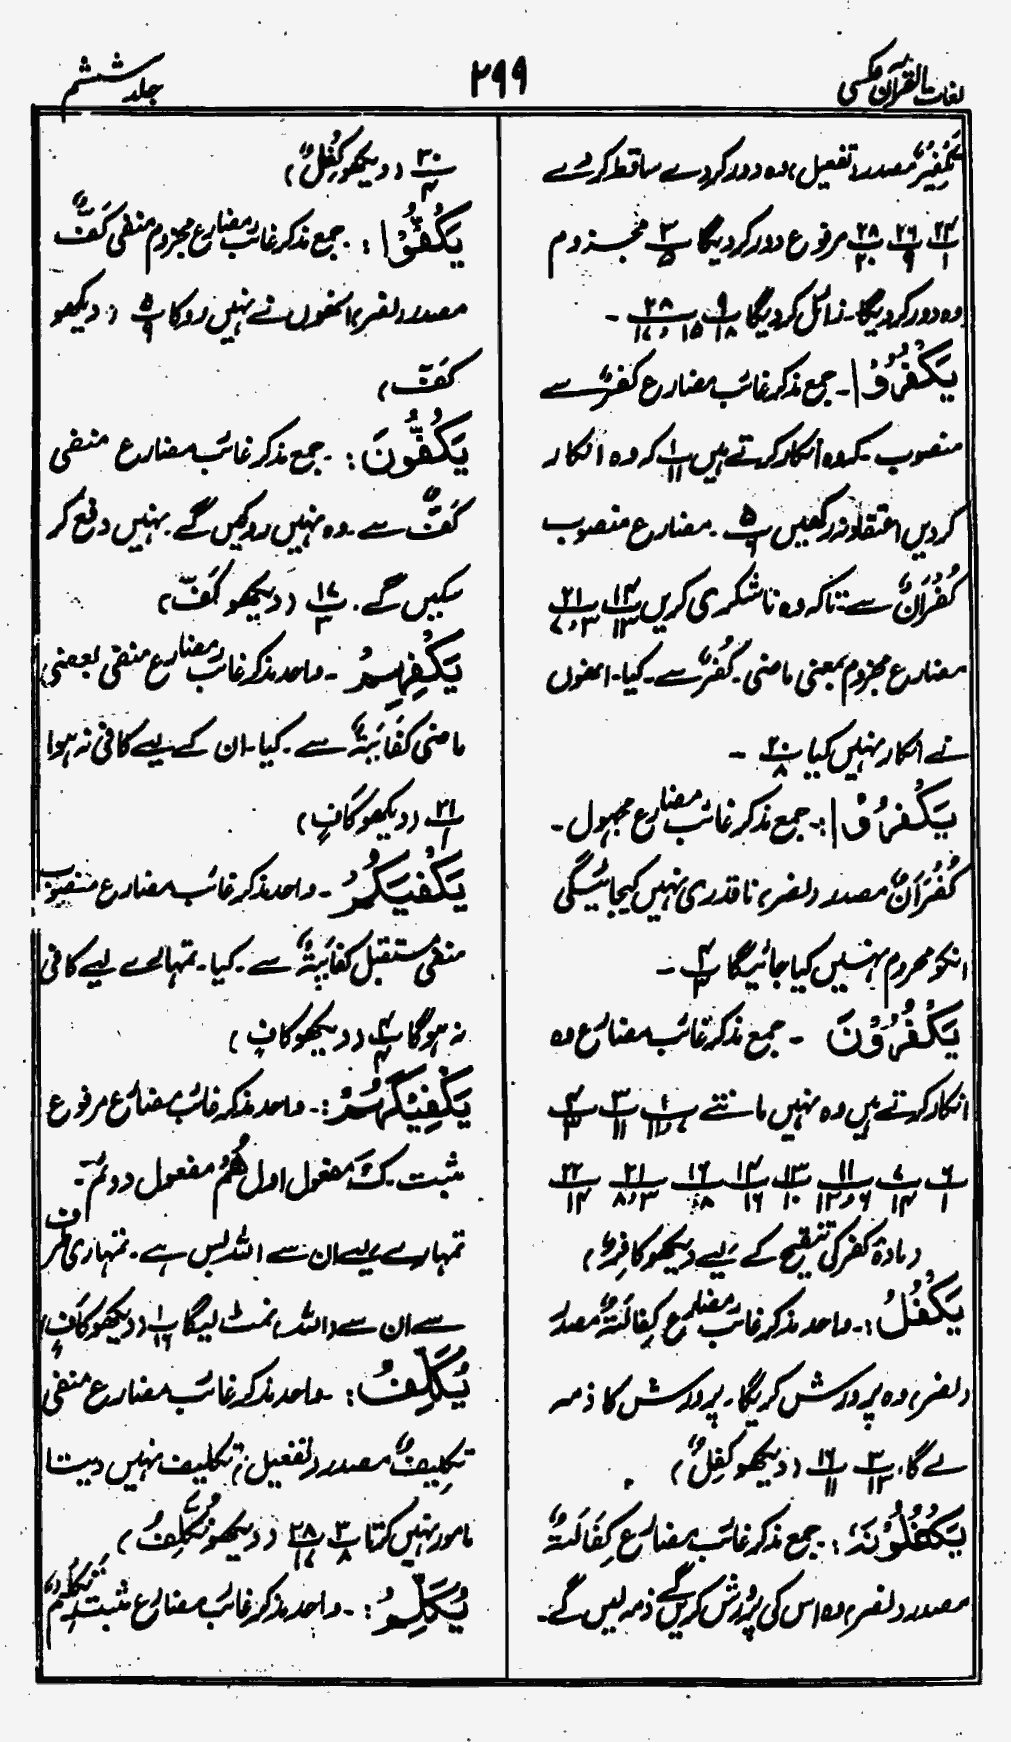 لغات القرآن عکسی
۲۹۹
جلد ششم
تکفیرٌ مصدر (تفعیل) وہ دور کر دے ساقط کر دے
۲۴/۱ ۲۶/۹ ۲۸/۲۰ مرفوع دور کر دیگا ۳/۵ مجزوم
وہ دور کر دیگا۔ زائل کر دیگا پ ۹/۱۸ ۲۸/۱۵ و ۱۷۔
یَکْفُرُوْا۔ جمع مذکر غائب مضارع کفرٌ سے
منصوب۔ کہ وہ انکار کرتے ہیں پ ۱/۱۱ کہ وہ انکار
کر دیں اعتقاد نہ رکھیں پ ۵/۶۔ مضارع منصوب
کُفْرَانٌ سے۔ تاکہ وہ ناشکری کریں ۱۴/۱۳ ۲۱/۳ و ۷
مضارع مجزوم بمعنی ماضی۔ کُفْرٌ سے۔ کیا۔ انھوں
نے انکار نہیں کیا پ ۲۰/۸۔
یُکْفَرُوْا:۔ جمع مذکر غائب مضارع مجہول۔
کُفْرَانٌ مصدر (نصر) ناقدری نہیں کیجائیگی
انکو محروم نہیں کیا جائیگا پ ۴/۳۔
یَکْفُرُوْنَ۔ جمع مذکر غائب مضارع وہ
انکار کرتے ہیں وہ نہیں مانتے پ ۱/۷ و ۱۱ ۳/۱۱ ۴/۳
۶/۱ ۷/۱۴ ۱۱/۶ و ۱۲ ۱۳/۱۰ ۱۴/۱۶ ۱۶/۸ ۲۱/۳ و ۸ ۲۲/۱۴
(مادۃ کفر کی تنقیح کے لیے دیکھو کافِرٌ)
یَکْفُلُ:۔ واحد مذکر غائب مضارع کِفَالَتٌ مصدر
(نصر) وہ پرورش کریگا۔ پرورش کا ذمہ
لے گا، ۳/۱۳ ۱۶/۱۱ (دیکھو کِفْلٌ)
یَکْفُلُوْنَہٗ:۔ جمع مذکر غائب مضارع کِفَالَتٌ
مصدر (نصر) وہ اس کی پرورش کریں گے ذمہ لیں گے۔
۲۰/۴ (دیکھو کِفْلٌ)
یَکُفُّوْا:۔ جمع مذکر غائب مضارع مجزوم منفی کَفٌّ
مصدر (نصر) انھوں نے نہیں روکا پ ۵/۹ (دیکھو
کَفَّ)
یَکُفُّوْنَ:۔ جمع مذکر غائب مضارع منفی
کَفٌّ سے۔ وہ نہیں روکیں گے۔ نہیں دفع کر
سکیں گے۔ ۱۷/۳ (دیکھو کَفَّ)
یَکْفِہِمْ۔ واحد مذکر غائب مضارع منفی بمعنی
ماضی کِفَایَۃٌ سے۔ کیا۔ ان کے لیے کافی نہ ہوا
۲۱/۱ (دیکھو کَافٍ)
یَکْفِیَکُمْ۔ واحد مذکر غائب مضارع منصوب
منفی مستقبل کِفَایَۃٌ سے۔ کیا۔ تمہارے لیے کافی
نہ ہوگا پ ۴/۴ (دیکھو کافٍ)
یَکْفِیْکَہُمْ:۔ واحد مذکر غائب مضارع مرفوع
مثبت۔ کَ مفعول اول ھُمْ مفعول دوئم۔
تمہارے لیے ان سے اللہ بس ہے۔ تمہاری طرف
سے ان سے (اللہ) نمٹ لیگا پ ۱/۱۶ (دیکھو کَافٍ)
یُکَلِّفُ:۔ واحد مذکر غائب مضارع منفی
تکلیفٌ مصدر (تفعیل) تکلیف نہیں دیتا
مامور نہیں کرتا پ ۳/۸ ۲۸/۱۷ (دیکھو نُکَلِّفُ)
یُکَلِّمُ:۔ واحد مذکر غائب مضارع مثبت تَکَلُّمٌ